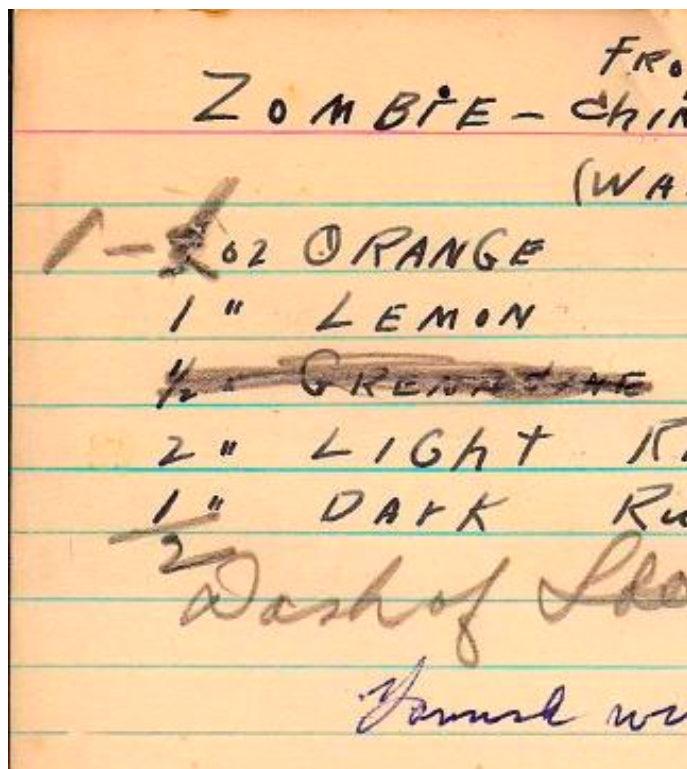 FRO
ZOMBIE - CHIN
(WA
1 - oz ORANGE
1 " LEMON
1/2 " GRENADINE
2 " LIGHT R
1/2 " DARK RU
Dash of